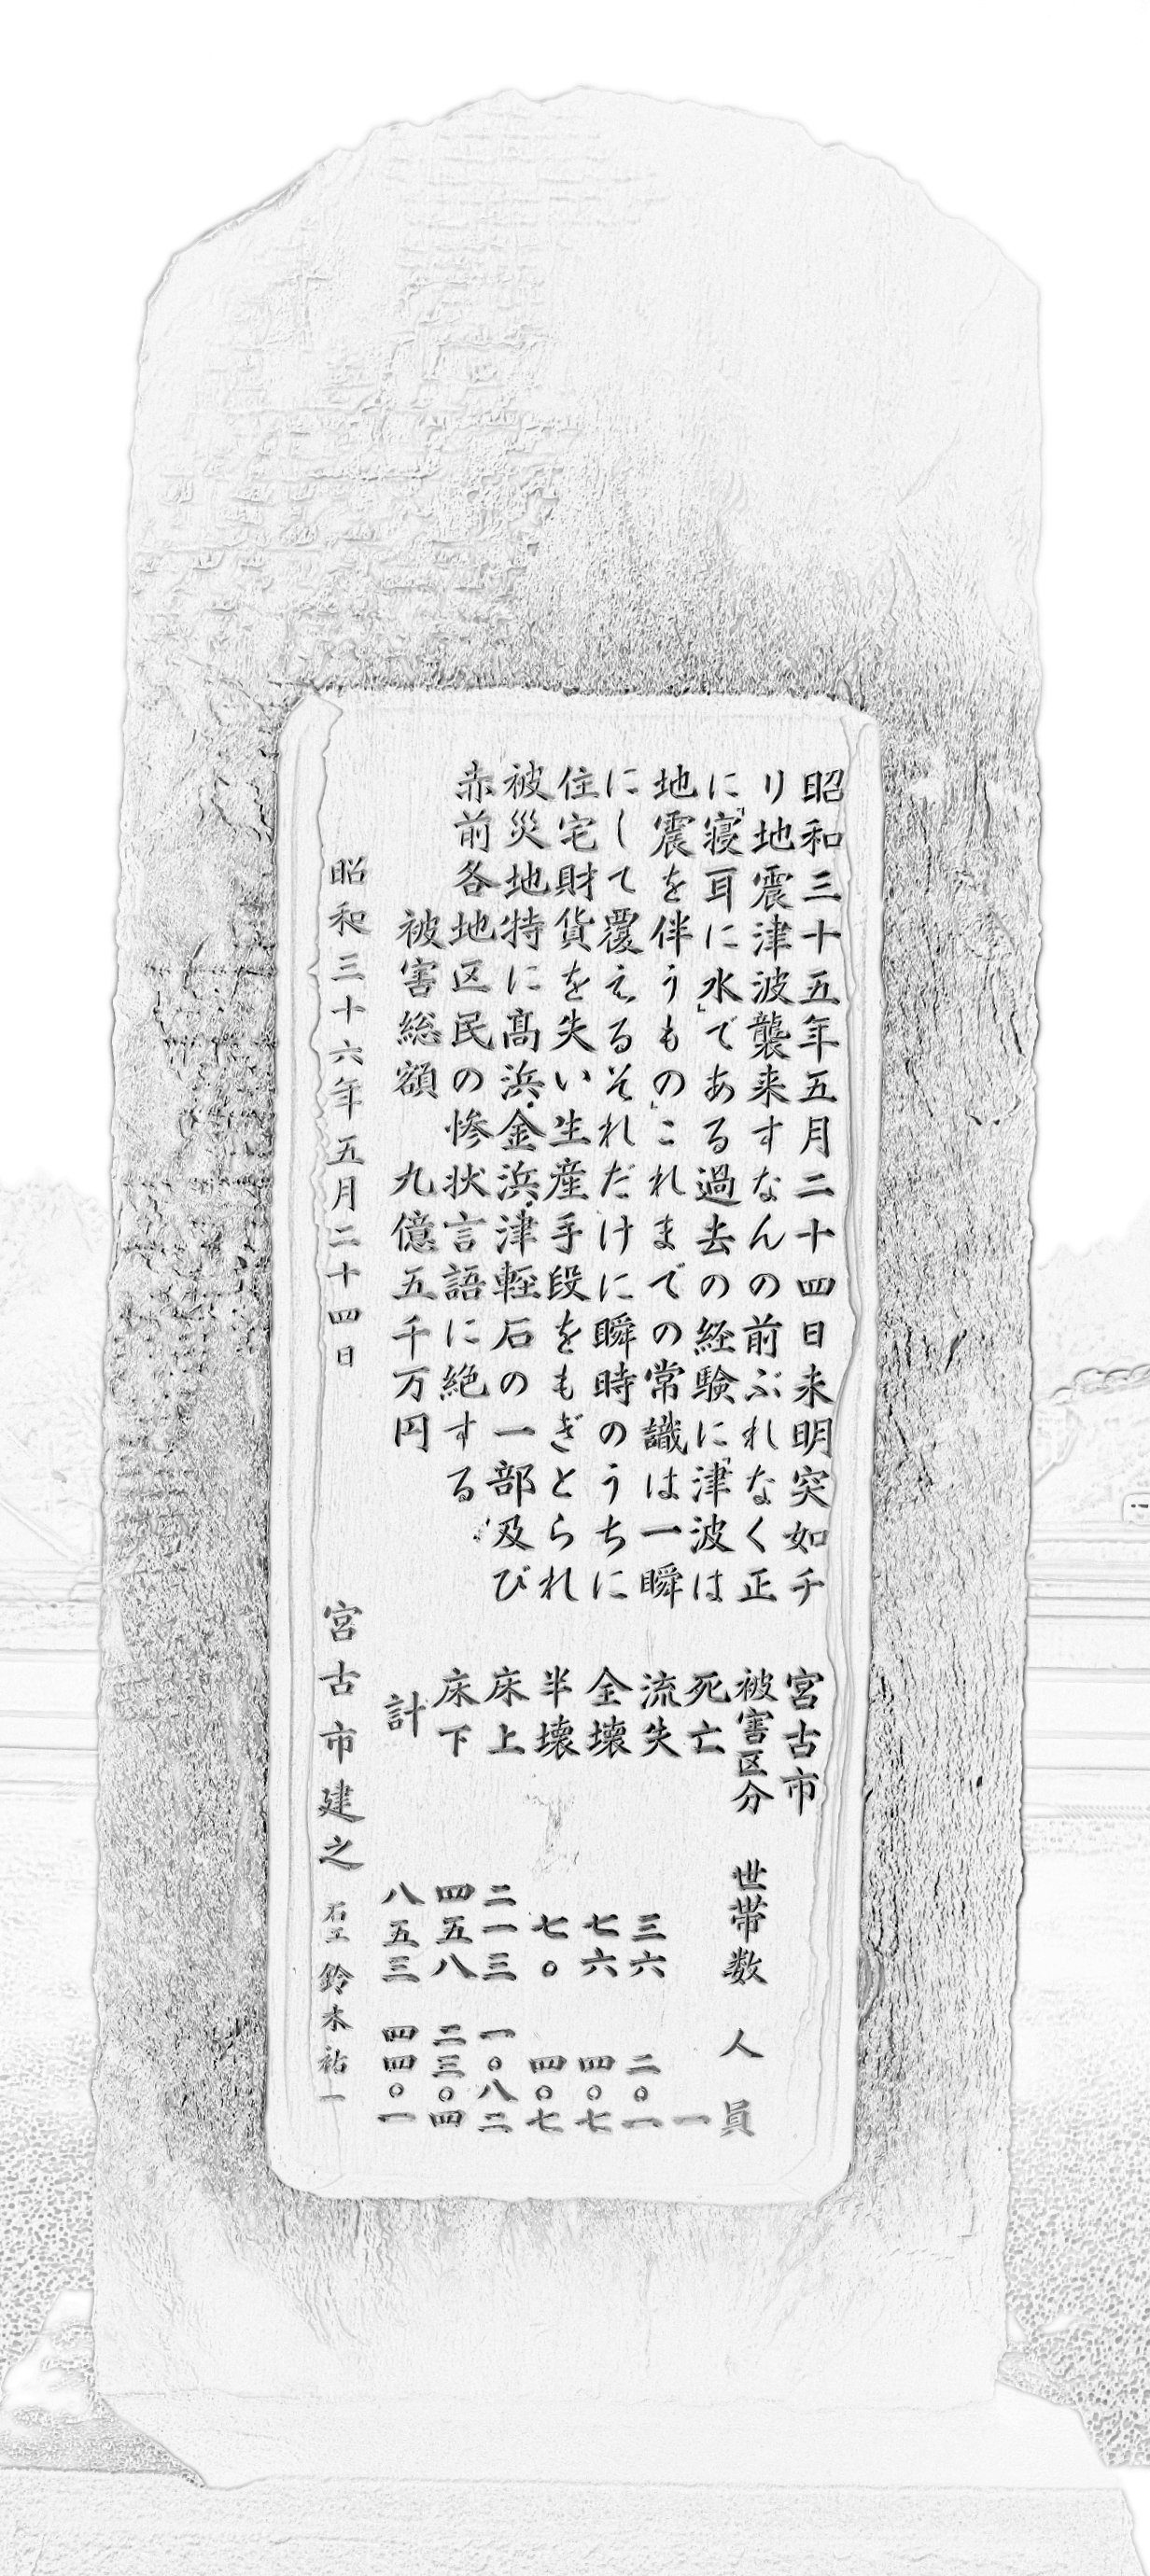 昭和三十五年五月二十四日未明突如チ
リ地震津波襲来すなんの前ぶれなく正
に「寝耳に水」である過去の経験に「津波は
地震を伴うもの」これまでの常識は一瞬
にして覆えるそれだけに瞬時のうちに
住宅財貨を失い生産手段をもぎとられ
被災地特に高浜・金浜・津軽石の一部及び
赤前各地区民の惨状言語に絶する
被害総額 九億五千万円
宮古市
被害区分 世帯数 人員
死亡 一
流失 三六 二〇一
全壊 七六 四〇七
半壊 七〇 四〇七
床上 二一三 一〇八二
床下 四五八 二三〇四
計 八五三 四四〇一
昭和三十六年五月二十四日
宮古市建之 石工 鈴木祐一